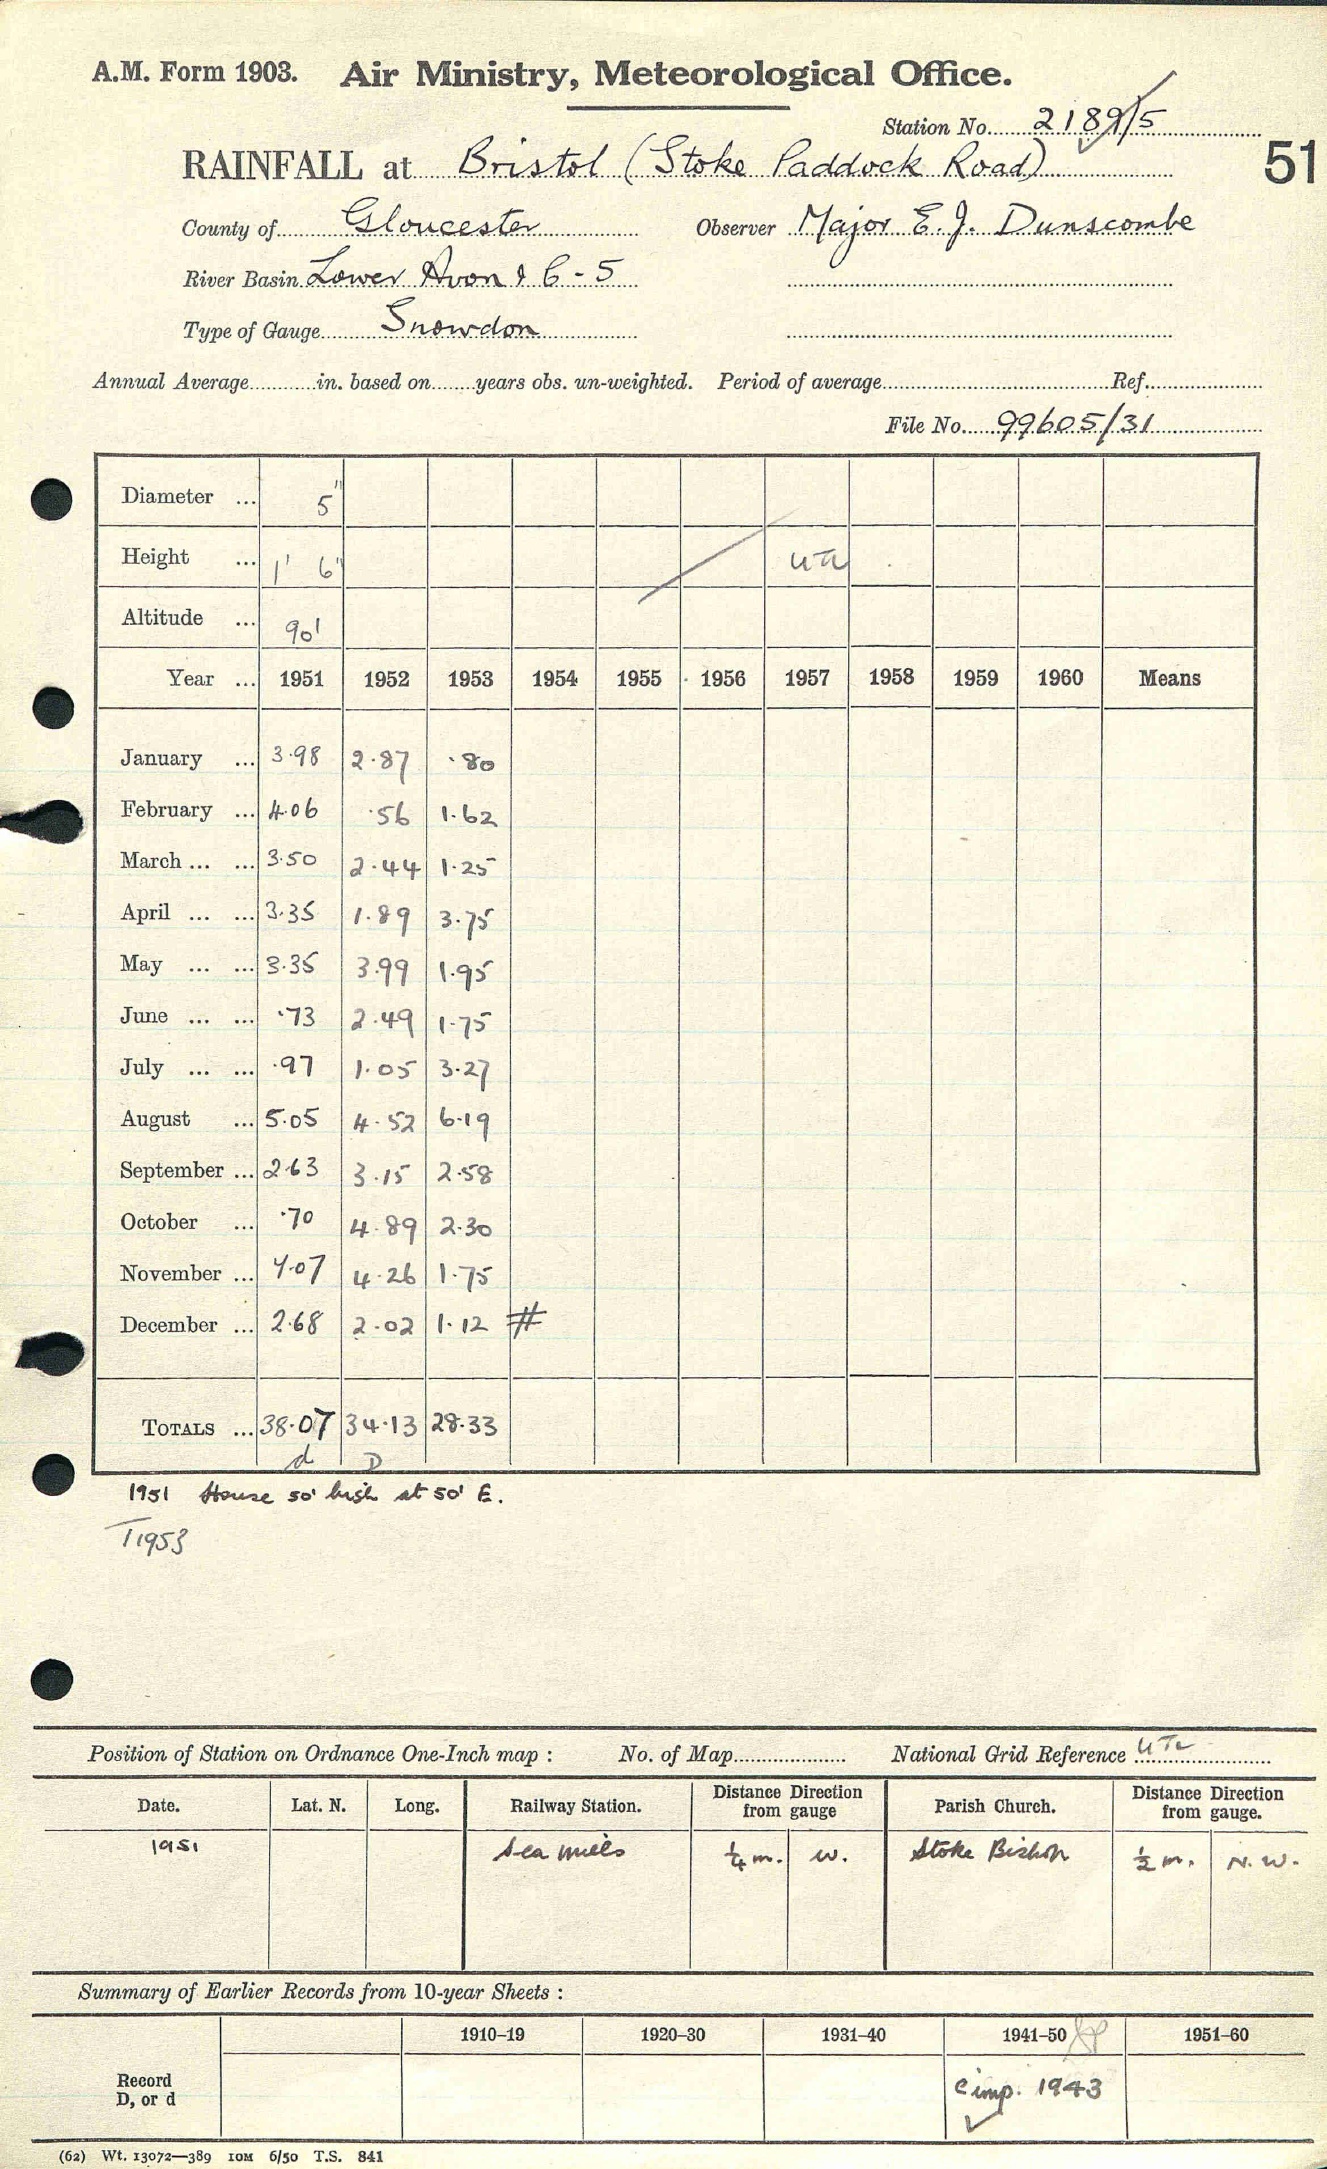 A.M. Form 1903. Air Ministry, Meteorological Office.
Station No. 2189/5
51
RAINFALL at Bristol (Stoke Paddock Road)
County of Gloucester Observer Major E. J. Dunscombe
River Basin Lower Avon & 6-5
Type of Gauge Snowdon
Annual Average in. based on years obs. un-weighted. Period of average Ref.
File No. 99605/31
Diameter ... 5"
Height ... 1' 6"
Altitude ... 90'
Year ... 1951 1952 1953 1954 1955 1956 1957 1958 1959 1960 Means
January ... 3.98 2.87 .80
February ... 4.06 .56 1.62
March ... ... 3.50 2.44 1.25
April ... ... 3.35 1.89 3.75
May ... ... 3.35 3.99 1.95
June ... ... .73 2.49 1.75
July ... ... .97 1.05 3.27
August ... 5.05 4.52 6.19
September ... 2.63 3.15 2.58
October ... .70 4.89 2.30
November ... 7.07 4.26 1.75
December ... 2.68 2.02 1.12 #
TOTALS ... 38.07 34.13 28.33
d D
1951 House 50' high at 50' E.
T1953
Position of Station on Ordnance One-Inch map : No. of Map National Grid Reference
Date. Lat. N. Long. Railway Station. Distance Direction from gauge Parish Church. Distance Direction from gauge.
1951 Sea Mills ¼ m. W. Stoke Bishop ½ m. N.W.
Summary of Earlier Records from 10-year Sheets :
1910–19 1920–30 1931–40 1941–50 1951–60
Record D, or d
c imp. 1943
(62) Wt. 13072—389 10M 6/50 T.S. 841